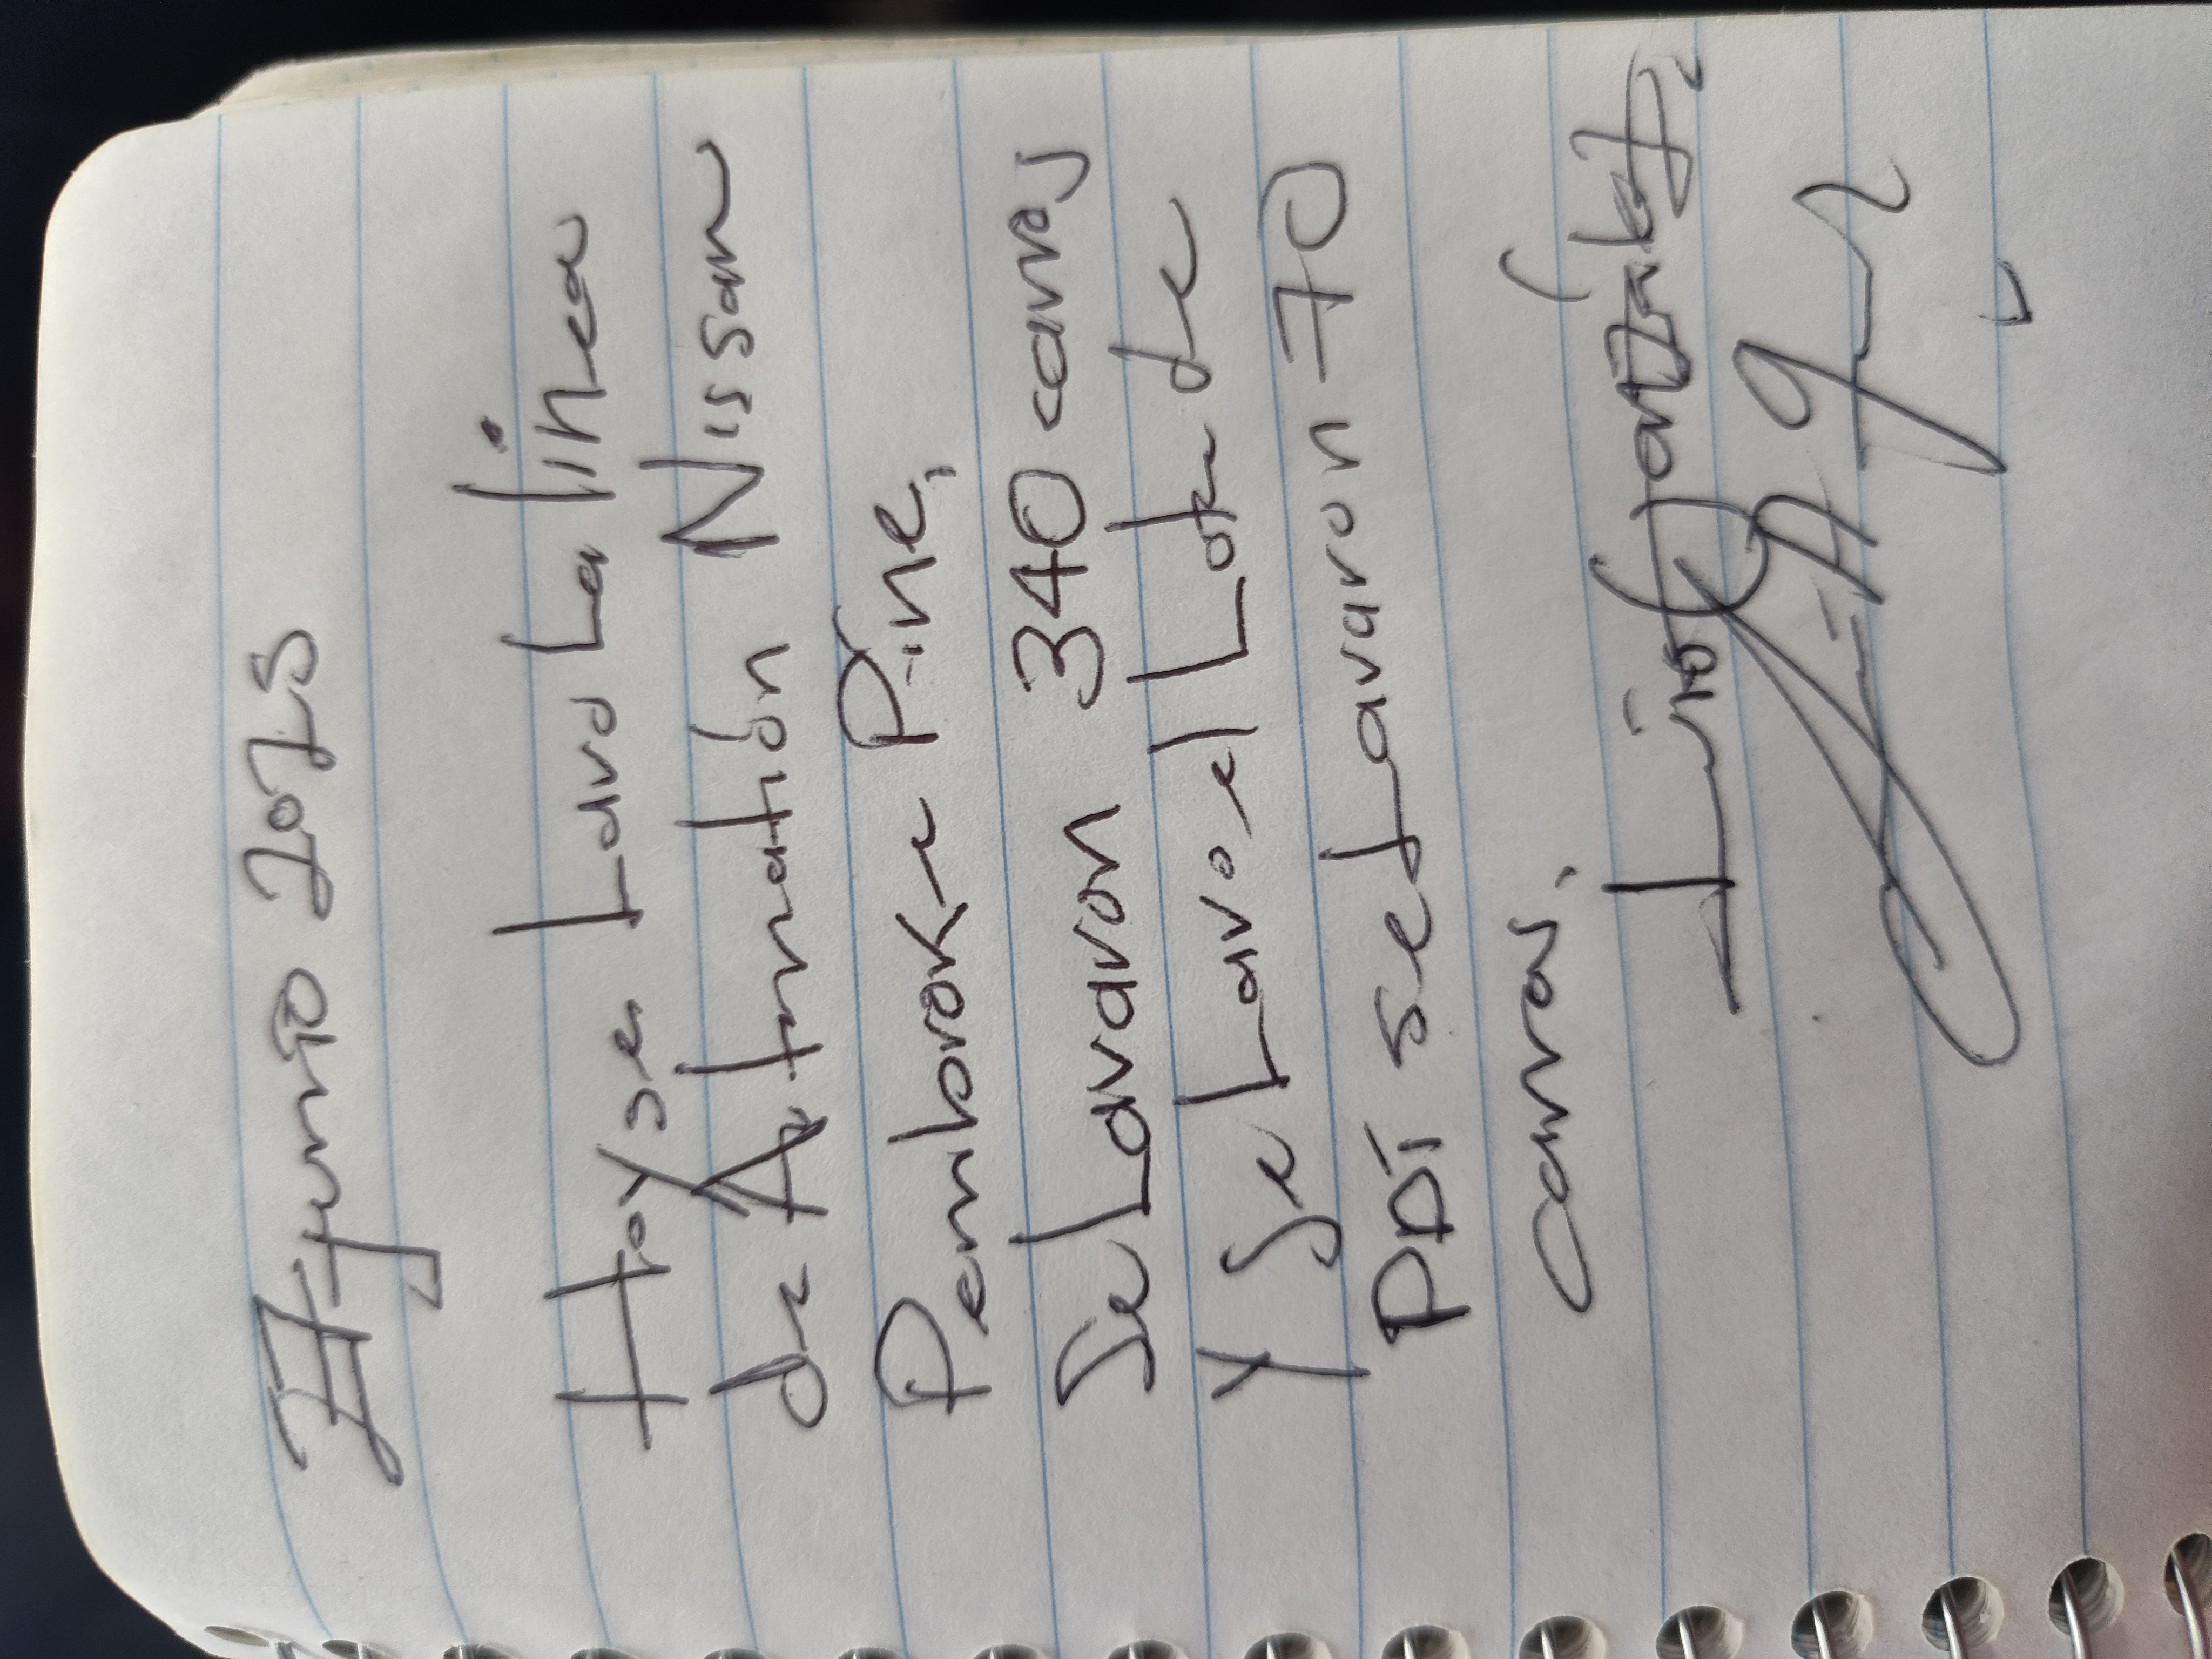 junio 2025
Hoy se Lavo La linea
de Atomation Nissan
Pembroke Pine,
Se Lavaron 340 carros
Y Se Lavo el Lote de
PDI se Lavaron 70
carros.